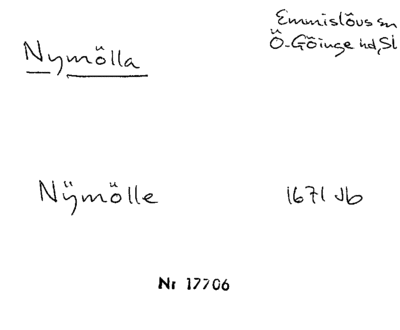 Emmislövs sn
Ö-Göinge hd, Sk
Nymölla
Nÿmölle
1671 Jb
Nr 17706